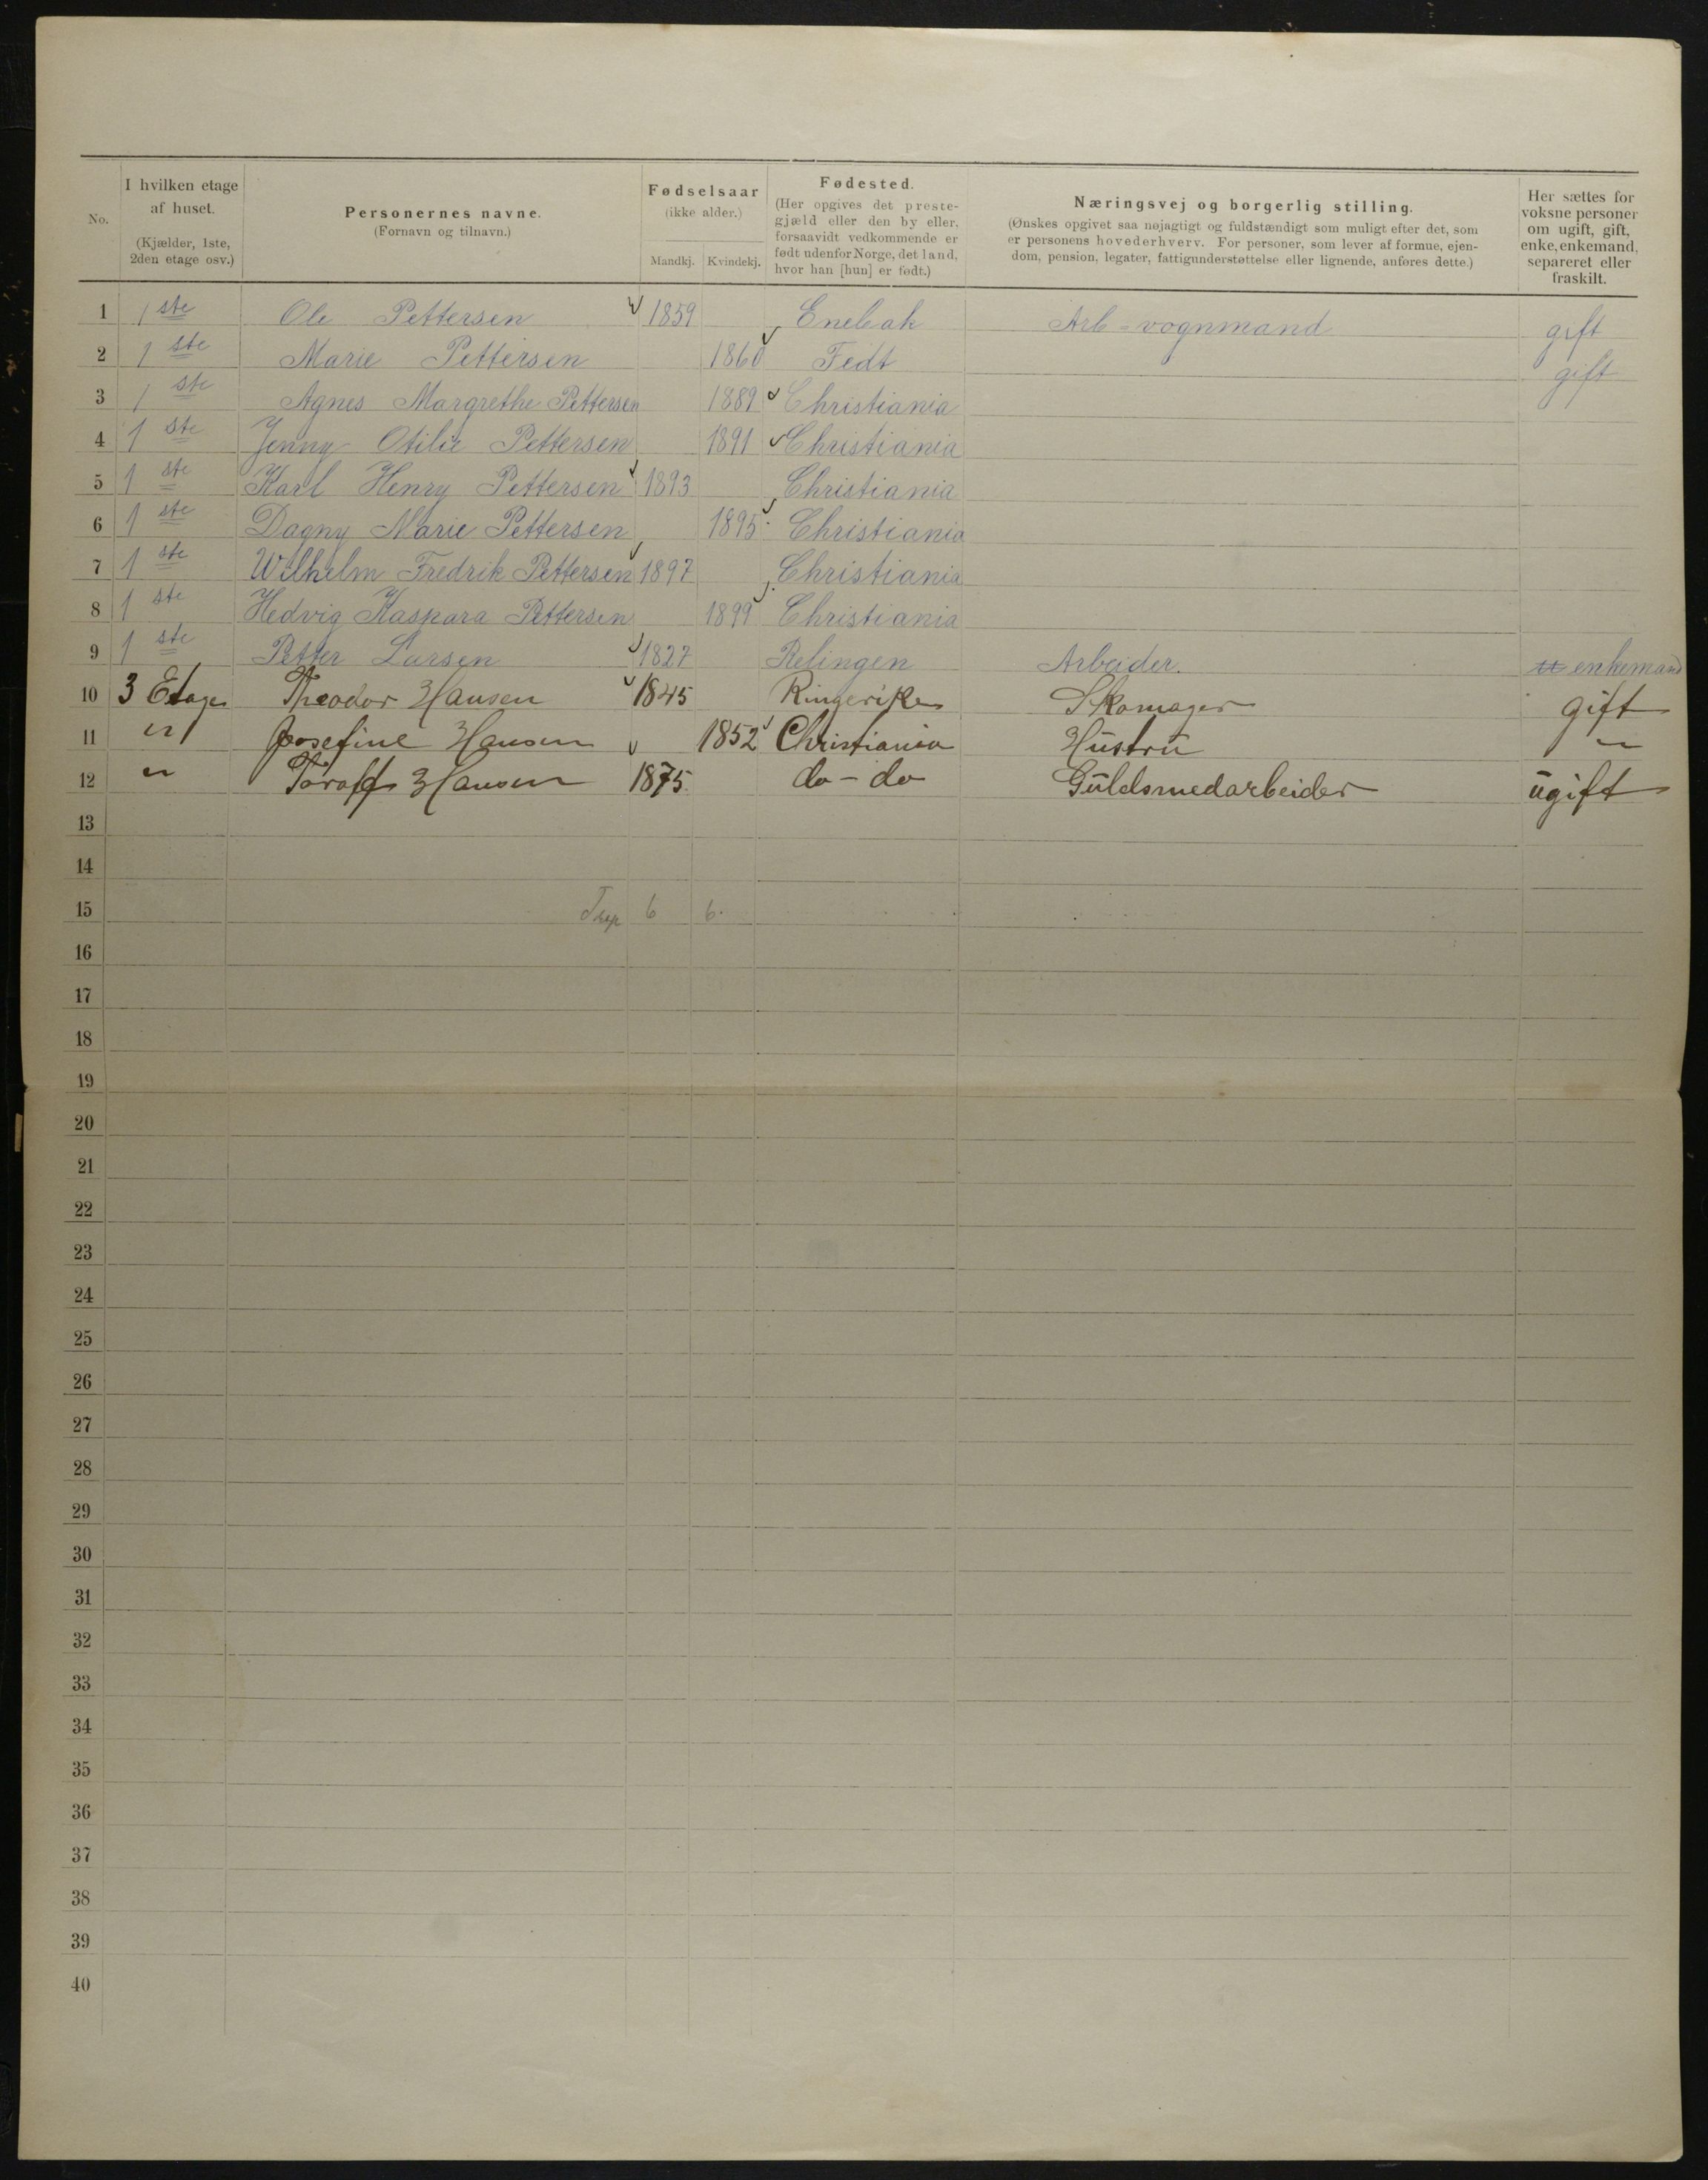 No.
I hvilken etage af huset. (Kjælder, 1ste, 2den etage osv.)
Personernes navne. (Fornavn og tilnavn.)
Fødselsaar (ikke alder.)
Mandkj. Kvindekj.
Fødested. (Her opgives det prestegjæld eller den by eller, forsaavidt vedkommende er født udenfor Norge, det land, hvor han [hun] er født.)
Næringsvej og borgerlig stilling. (Ønskes opgivet saa nøjagtigt og fuldstændigt som muligt efter det, som er personens hovederhverv. For personer, som lever af formue, ejendom, pension, legater, fattigunderstøttelse eller lignende, anføres dette.)
Her sættes for voksne personer om ugift, gift, enke, enkemand, separeret eller fraskilt.
1 1 ste Ole Pettersen 1859 Enebak Arb-vognmand gift
2 1 ste Marie Pettersen 1860 Fedt gift
3 1 ste Agnes Margrethe Pettersen 1889 Christiania
4 1 ste Jenny Otilie Pettersen 1891 Christiania
5 1 ste Karl Henry Pettersen 1893 Christiania
6 1 ste Dagny Marie Pettersen 1895 Christiania
7 1 ste Wilhelm Fredrik Pettersen 1897 Christiania
8 1 ste Hedvig Kaspara Pettersen 1899 Christiania
9 1 ste Petter Larsen 1827 Relingen Arbeider. enkemand
10 3 Etage Theodor Hansen 1845 Ringerike Skomager gift
11 " Josefine Hansen 1852 Christiania Hustru "
12 " Hansen 1875 do - do Guldsmedarbeider ugift
13
14
15 6 6.
16
17
18
19
20
21
22
23
24
25
26
27
28
29
30
31
32
33
34
35
36
37
38
39
40